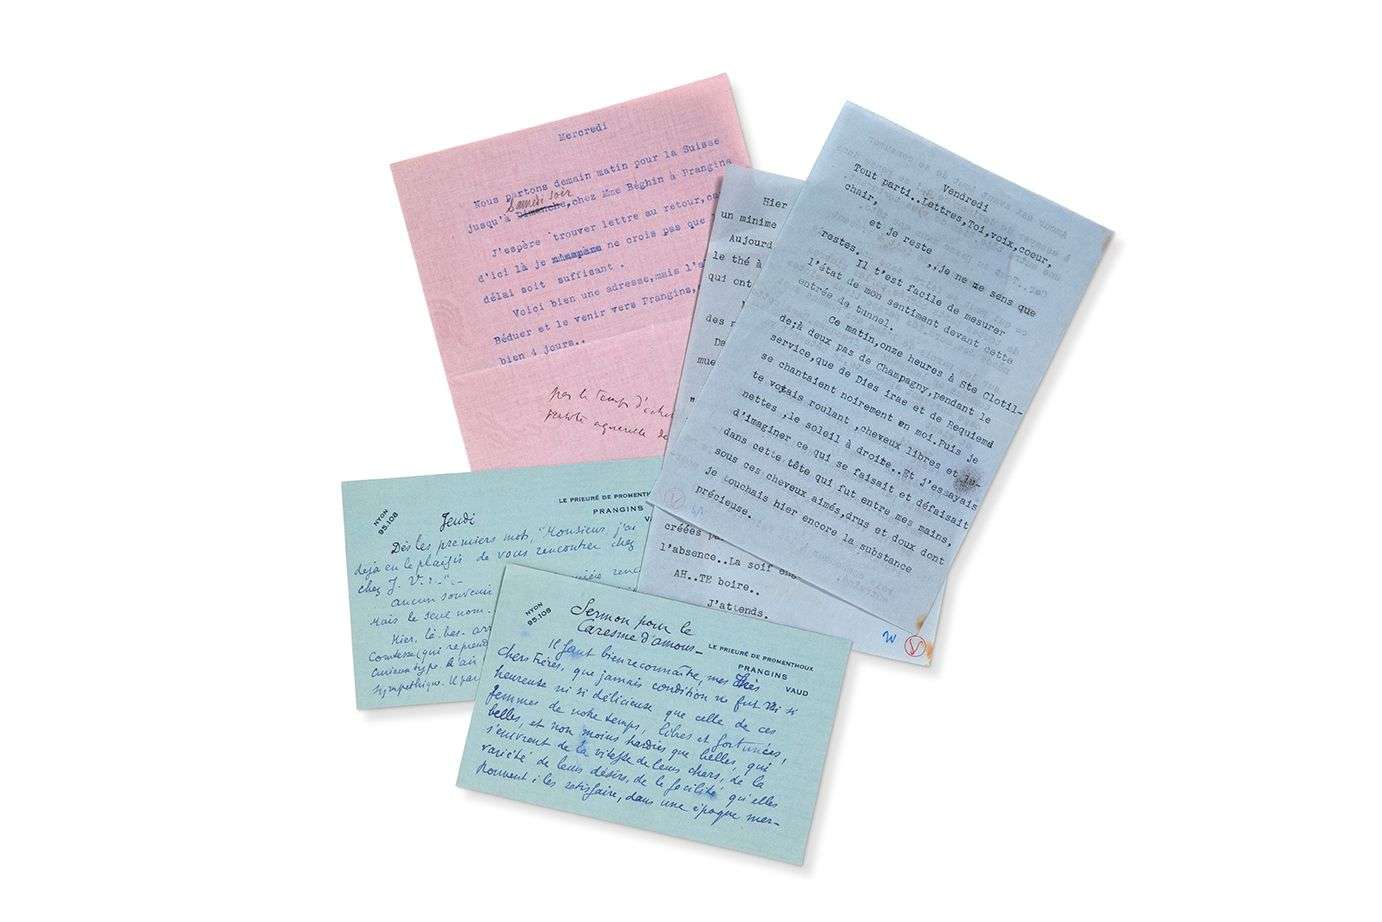 Mercredi
Nous partons demain matin pour la Suisse
Samedi soir
jusqu'à Dimanche,chez Mme Béghin à Prangins
J'espère trouver lettre au retour,car
d'ici là je ne crois pas que
délai soit suffisant .
Voici bien une adresse,mais l'a
Béduer et le venir vers Prangins,
bien 4 jours..
pas le temps d'
Hier
un minime
Aujourd
le thé à
qui ont
des p
De
mue
créées pa
l'absence..La soif
AH..TE boire..
J'attends.
W V
Vendredi
Tout parti..Lettres,Toi,voix,coeur,
chair,
et je reste ,,je ne me sens que
restes.
Il t'est facile de mesurer
l'état de mon sentiment devant cette
entrée de tunnel.
Ce matin,onze heures à Ste Clotil-
de;à deux pas de Champagny,pendant le
service,que de Dies irae et de Requiemd
se chantaient noirement en moi.Puis je
te votais roulant ,cheveux libres et lu-
nettes ,le soleil à droite..Et j'essayais
d'imaginer ce qui se faisait et défaisait
dans cette tête qui fut entre mes mains,
sous ces cheveux aimés,drus et doux dont
je touchais hier encore la substance
précieuse.
V
NYON
95.108
LE PRIEURÉ DE PROMENTHOUX
PRANGINS
VAUD
Jeudi
Dès les premiers mots, "Monsieur, j'ai
déjà eu le plaisir de vous rencontrer chez
chez J. V..."
Aucun souvenir
Mais le seul nom.
Hier, là-bas
Comtesse (qui reprend
curieux type à l'air
sympathique. Il par
NYON
95.108
LE PRIEURÉ DE PROMENTHOUX
PRANGINS
VAUD
Sermon pour le
Caresme d'amour_
Il faut bien reconnaître, mes Très
chers Frères, que jamais condition ne fut ni si
heureuse ni si délicieuse que celle de ces
femmes de notre temps, libres et fortunées,
belles, et non moins hardies que belles, qui
s'enivrent de la vitesse de leurs chars, de la
variété de leurs désirs, de la facilité qu'elles
trouvent à les satisfaire, dans une époque mer-